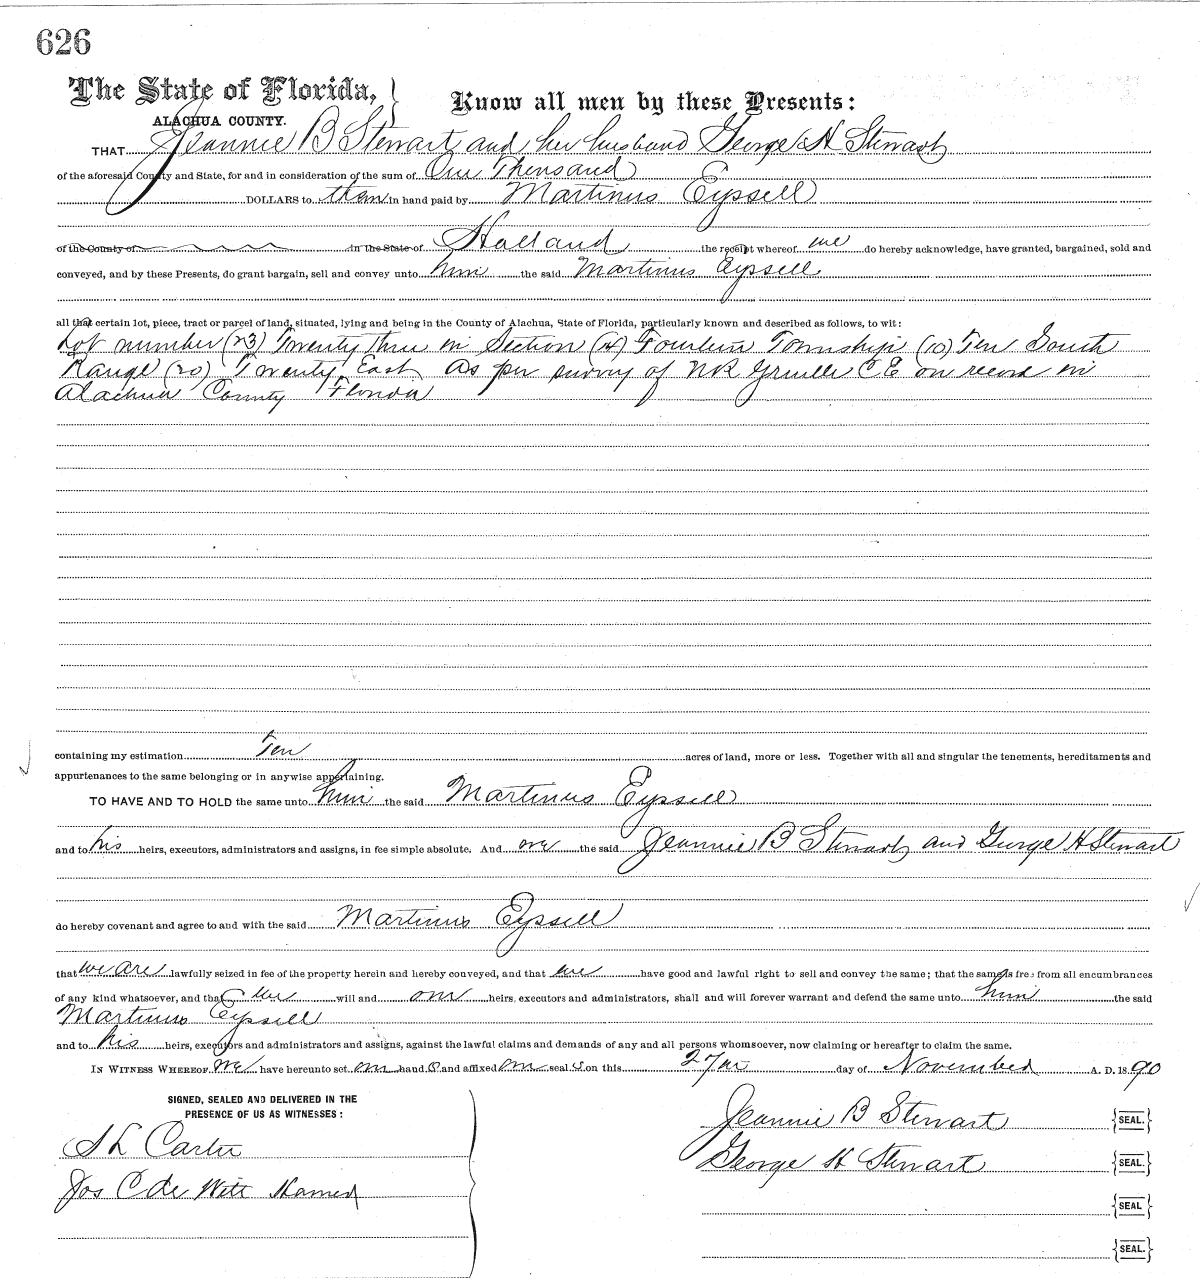 626
The State of Florida,
ALACHUA COUNTY.
Know all men by these Presents:
THAT Jeannie B Stewart and her husband George H Stewart
of the aforesaid County and State, for and in consideration of the sum of One Thousand
DOLLARS to them in hand paid by Martinus Eyssell
of the County of in the State of Holland the receipt whereof we do hereby acknowledge, have granted, bargained, sold and
conveyed, and by these Presents, do grant bargain, sell and convey unto him the said Martinus Eyssell
all that certain lot, piece, tract or parcel of land, situated, lying and being in the County of Alachua, State of Florida, particularly known and described as follows, to wit:
Lot number (23) Twenty three in Section (14) Fourteen Township (10) Ten South
Range (20) Twenty East As per survey of N R Gruelle C E on record in
Alachua County Florida
containing my estimation Ten acres of land, more or less. Together with all and singular the tenements, hereditaments and
appurtenances to the same belonging or in anywise appertaining.
TO HAVE AND TO HOLD the same unto him the said Martinus Eyssell
and to his heirs, executors, administrators and assigns, in fee simple absolute. And we the said Jeannie B Stewart and George H Stewart
do hereby covenant and agree to and with the said Martinus Eyssell
that we are lawfully seized in fee of the property herein and hereby conveyed, and that we have good and lawful right to sell and convey the same; that the same is free from all encumbrances
of any kind whatsoever, and that we will and our heirs, executors and administrators, shall and will forever warrant and defend the same unto him the said
Martinus Eyssell
and to his heirs, executors and administrators and assigns, against the lawful claims and demands of any and all persons whomsoever, now claiming or hereafter to claim the same.
IN WITNESS WHEREOF we have hereunto set our hand s and affixed our seal s on this 27 day of November A. D. 1890
SIGNED, SEALED AND DELIVERED IN THE
PRESENCE OF US AS WITNESSES:
S L Carter
Jos C de Witt
Jeannie B Stewart SEAL.
George H Stewart SEAL.
SEAL
SEAL.